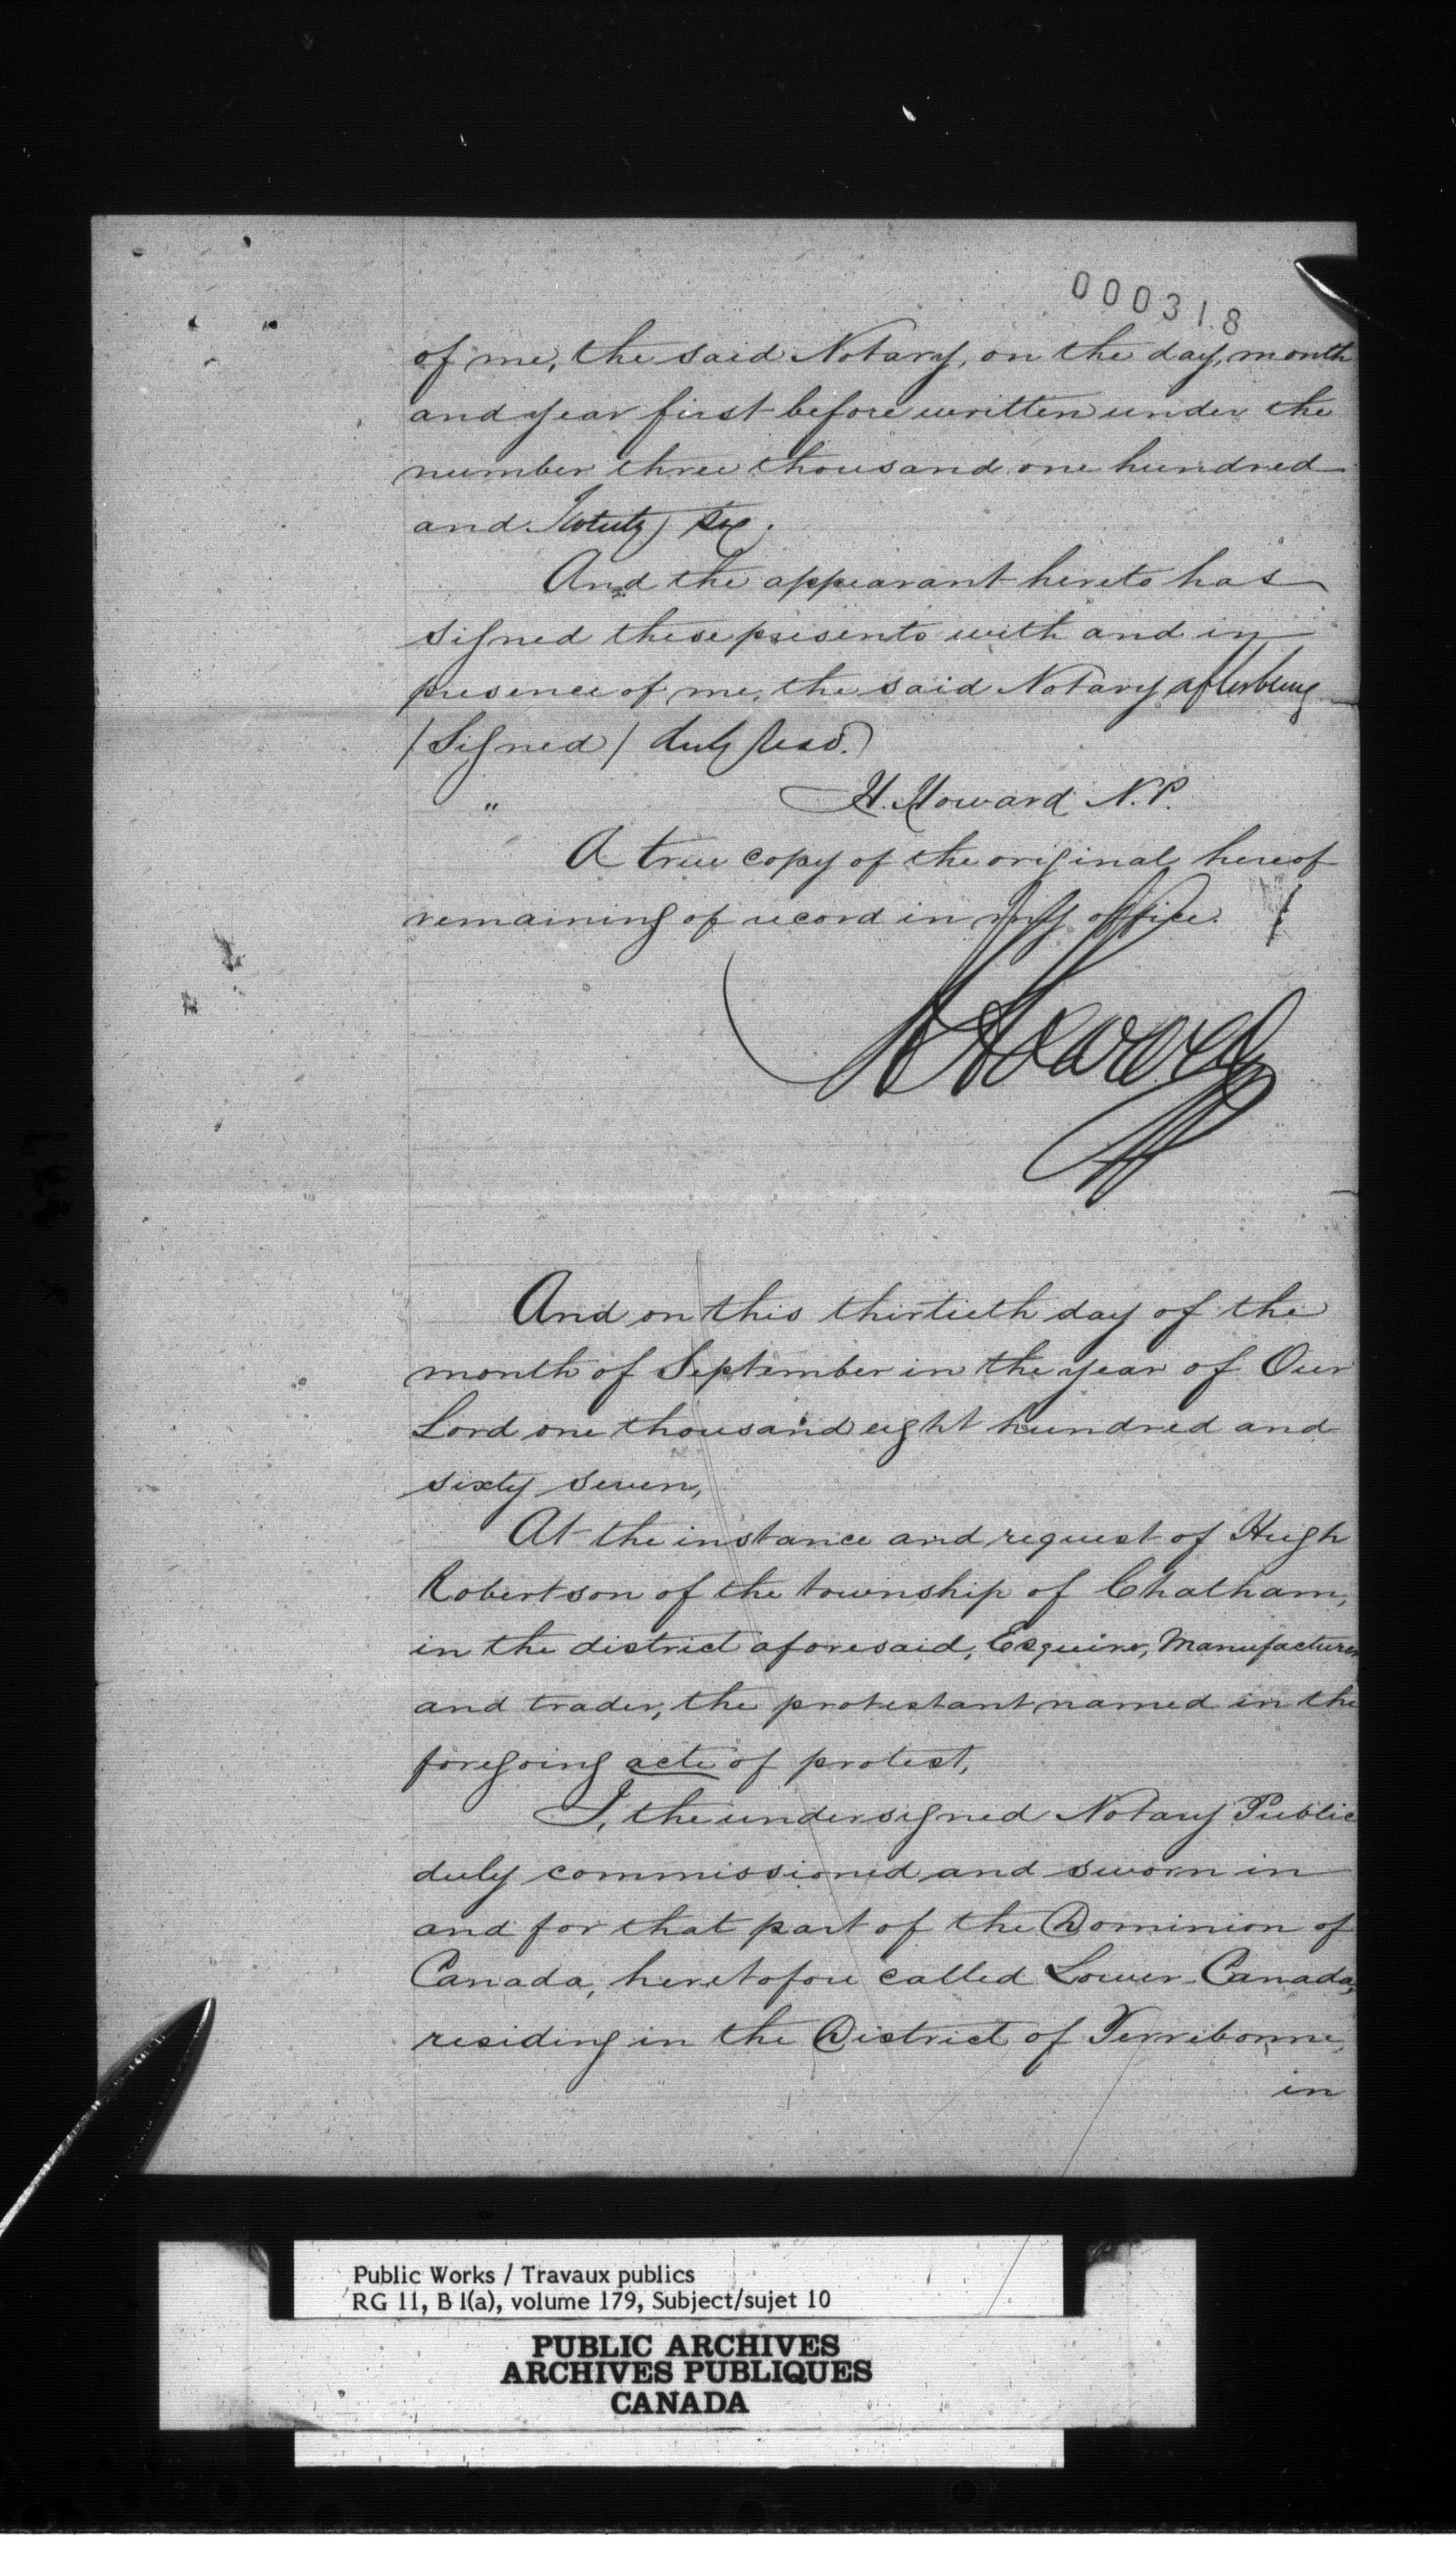 000318
of me, the said Notary, on the day, month
and year first before written under the
number three thousand one hundred
and Twenty six.
And the appearant hereto has
signed these presents with and in
presence of me, the said Notary after being
/Signed/ duly read.
" H. Howard N.P.
A true copy of the original hereof
remaining of record in my office.
H Howard
NP
And on this thirtieth day of the
month of September in the year of Our
Lord one thousand eight hundred and
sixty seven,
At the instance and request of Hugh
Robertson of the township of Chatham,
in the district aforesaid, Esquire, Manufacturer
and trader, the protestant named in the
foregoing acte of protest,
I, the undersigned Notary Public
duly commissioned and sworn in
and for that part of the Dominion of
Canada, heretofore called Lower Canada,
residing in the District of Terrebonne,
in
Public Works / Travaux publics
RG 11, B 1(a), volume 179, Subject/sujet 10
PUBLIC ARCHIVES
ARCHIVES PUBLIQUES
CANADA